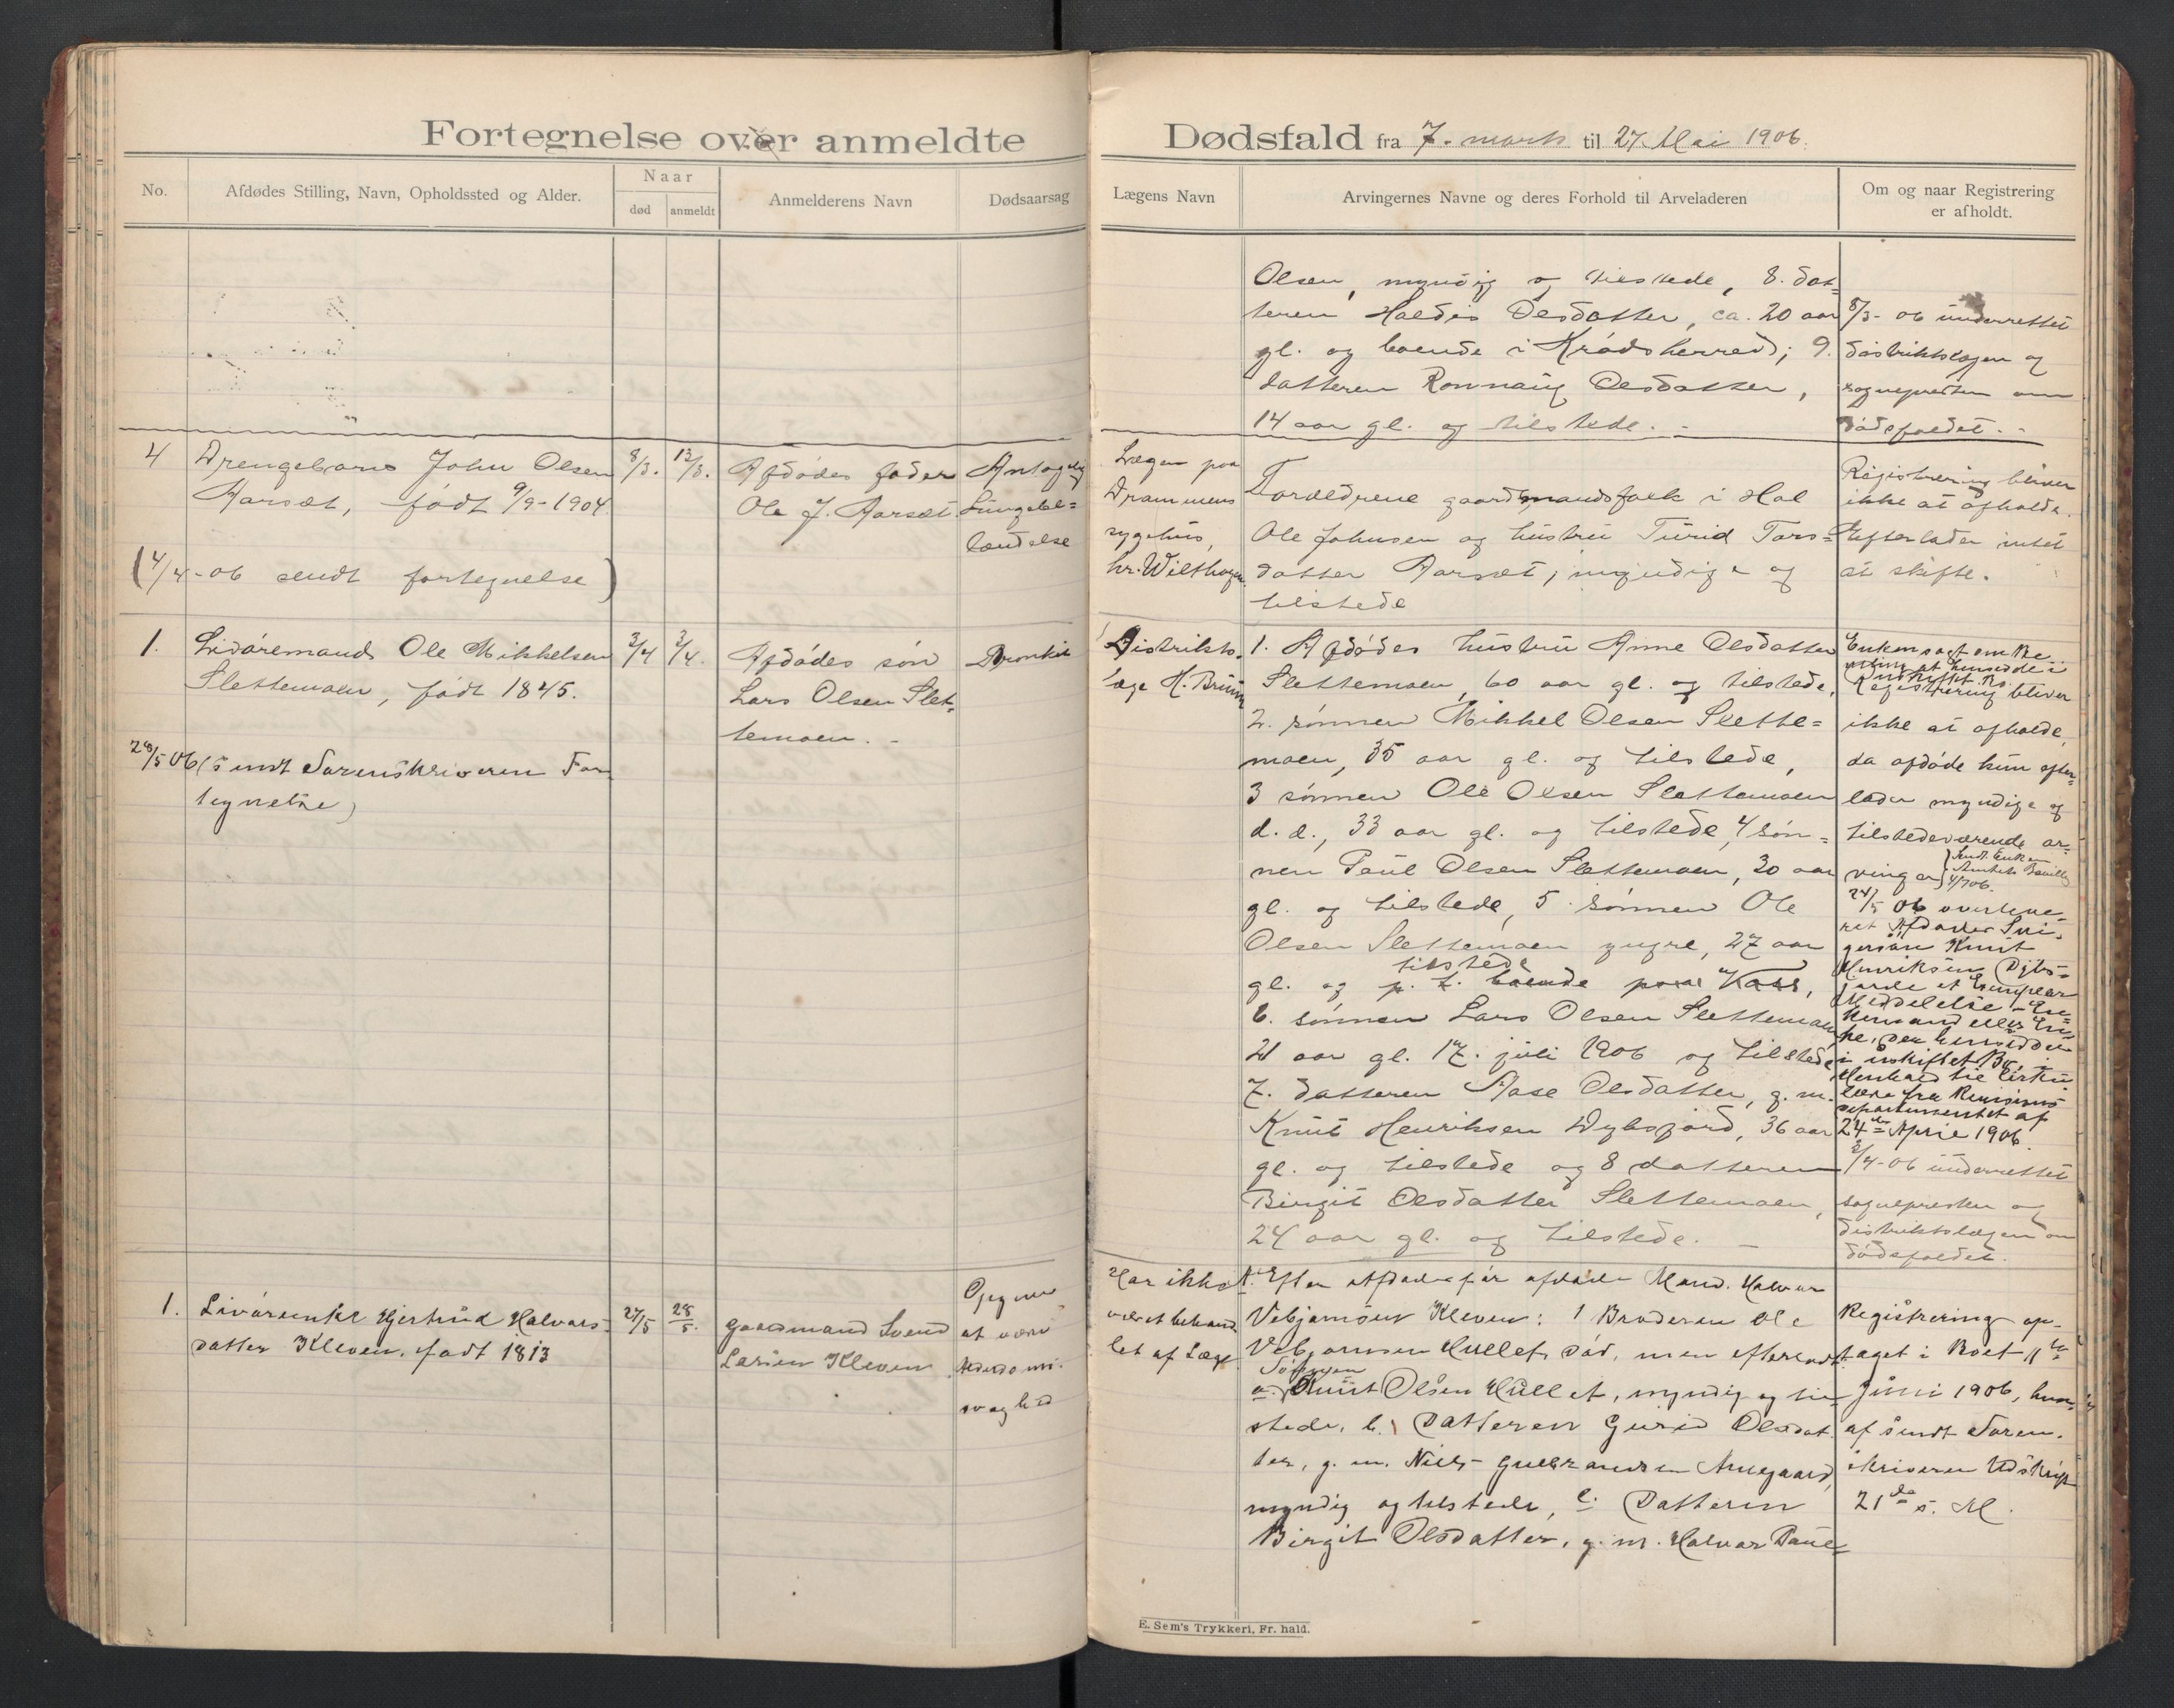 Fortegnelse over anmeldte
Dødsfald fra 7. marts til 27. Mai 1906.
No.
Afdødes Stilling, Navn, Opholdssted og Alder.
Naar
død
anmeldt
Anmelderens Navn
Dødsaarsag
Lægens Navn
Arvingernes Navne og deres Forhold til Arveladeren
Om og naar Registrering
er afholdt.
Olsen, myndig og tilstede, 8. dat-
teren Haldis Olsdatter, ca. 20 aar
gl. og boende i Krødsherred; 9.
datteren Ronnaug Olsdatter,
14 aar gl. og tilstede. -
8/3-06 underrettet
distriktslægen og
sognepresten om
dødsfaldet. -
4
Drengebarn John Olsen
Aarset, født 9/9-1904.
(4/4-06 sendt fortegnelse)
8/3.
12/3.
Afdødes fader
Ole J. Aarset.
Antagelig
Lungebe-
tændelse
Lægen paa
Drammens
sygehus,
hr. Wilthagen
Forældrene gaardmandsfolk i Hol
Ole Johnsen og hustru Turid Tors-
datter Aarset, myndige og
tilstede
Registrering bliver
ikke at afholde.
Efterlader intet
at skifte.
1.
Livøremand Ole Mikkelsen
Slettemoen, født 1845.
28/5 06 (sendt Sorenskriveren For-
tegnelse)
3/4
3/4.
Afdødes søn
Lars Olsen Slet-
temoen. -
Bronkit
Distrikts-
læge H. Bruun
1. Afdødes hustru Anne Olsdatter
Slettemoen, 60 aar gl. og tilstede,
2. sønnen Mikkel Olsen Slette-
moen, 35 aar gl. og tilstede,
3 sønnen Ole Olsen Slettemoen
d. æ., 33 aar gl. og tilstede, 4 søn-
nen Paul Olsen Slettemoen, 30 aar
gl. og tilstede, 5. sønnen Ole
Olsen Slettemoen yngre, 27 aar
tilstede
gl. og p. t. boende paa Voss,
6. sønnen Lars Olsen Slettemoen,
21 aar gl. 17. juli 1906 og tilstede,
7. datteren Aase Olsdatter, g. m.
Knut Henriksen Dybsjord, 36 aar
gl. og tilstede og 8 datteren
Birgit Olsdatter Slettemoen,
24 aar gl. og tilstede. -
Enken søgt om Be-
villing at hensidde i
uskiftet Bo.
Registrering bliver
ikke at afholde,
da afdøde kun efter-
lader myndige og
tilstedeværende ar-
vinger
Sendt Enken
Amtets Bevilling
24/5 06 overleve-
ret Afdødes Svi-
gersøn Knut
Henriksen Dybs-
jorde et Exemplar
Meddelelse - En-
kemand eller En-
ke, der hensidder
i uskiftet Bo, -
Henhold til Cirku-
lære fra Revisions
departementet af
24de April 1906.
3/4-06 underrettet
sognepresten og
distriktslægen om
dødsfaldet.
1.
Livørenke Gjertrud Halvors-
datter Kleven, født 1813
27/5
28/5.
gaardmand Svend
Larsen Kleven
at være
Alderdoms-
svaghed
Har ikke
været behand-
let af Læge.
1. Efter afdødes før afdøde Mand. Halvor
Vebjørnsen Kleven: 1 Broderen Ole
Vebjørnsen Hullet, død, men efterladt:
Sønnen
a. Knut Olsen Hullet, myndig og til-
stede, b. Datteren Guri Olsdat-
ter, g. m. Niels Gulbrandsen Anegaard,
myndig og tilstede, c. Datteren
Birgit Olsdatter, g. m. Halvor Paul-
Registrering op-
taget i Boet 11te
Juni 1906, hvor-
af sendt Soren-
skriveren Udskrift
21de s. M.
E. Sem's Trykkeri, Fr. hald.